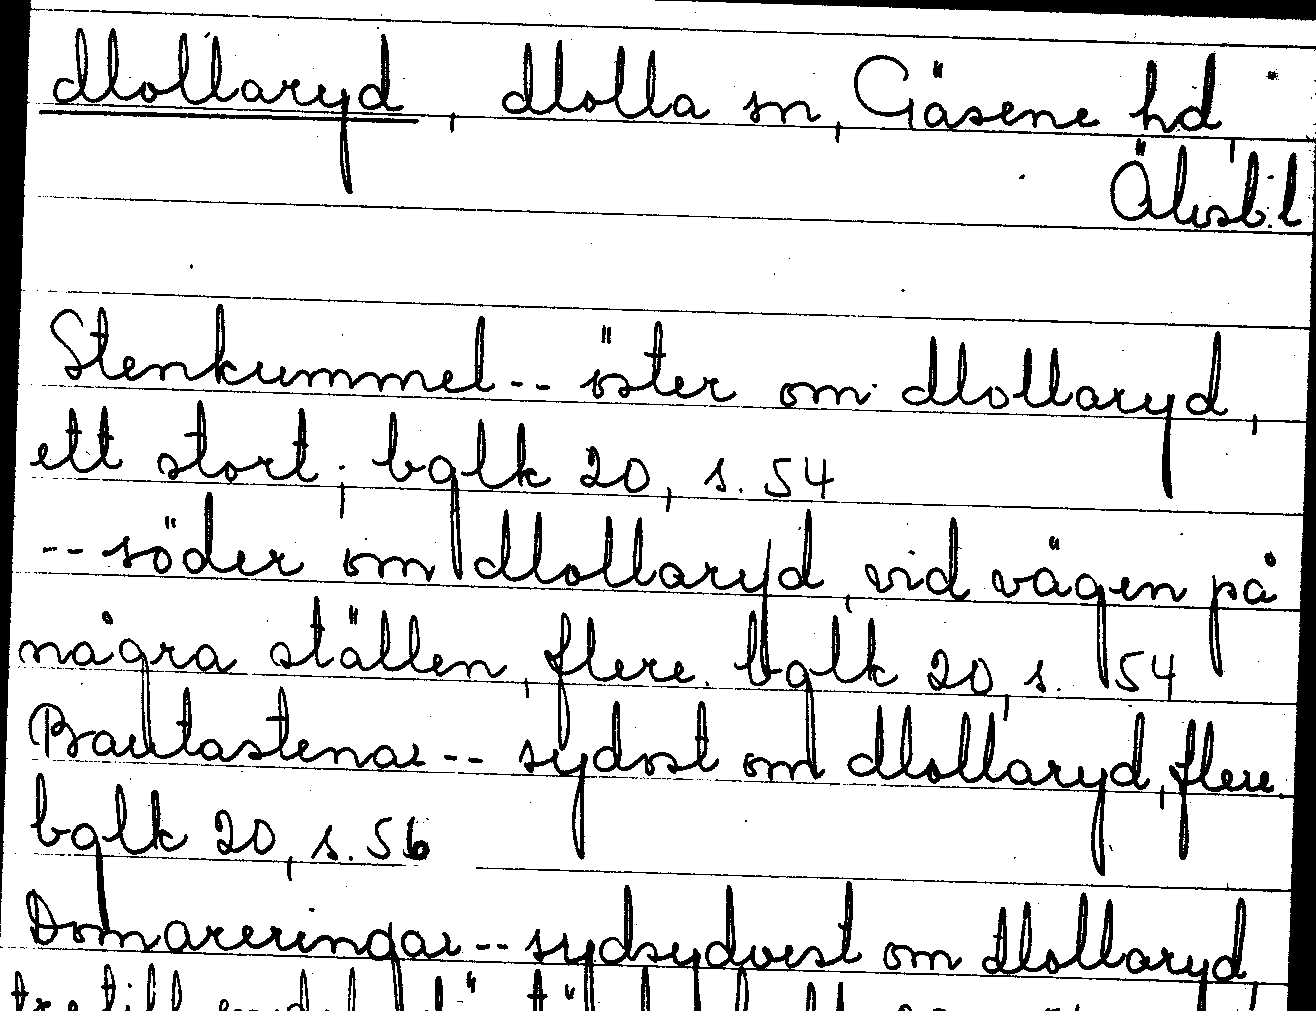 Mollaryd, Molla sn, Gäsene hd,
Älvsb.l
Stenkummel -- öster om Mollaryd,
ett stort; bglk 20, s. 54
-- söder om Mollaryd, vid vägen på
några ställen, flere. bglk 20, s. 54
Bautastenar -- sydost om Mollaryd, flere.
bglk 20, s. 56
Domareringar -- sydsydvest om Mollaryd,